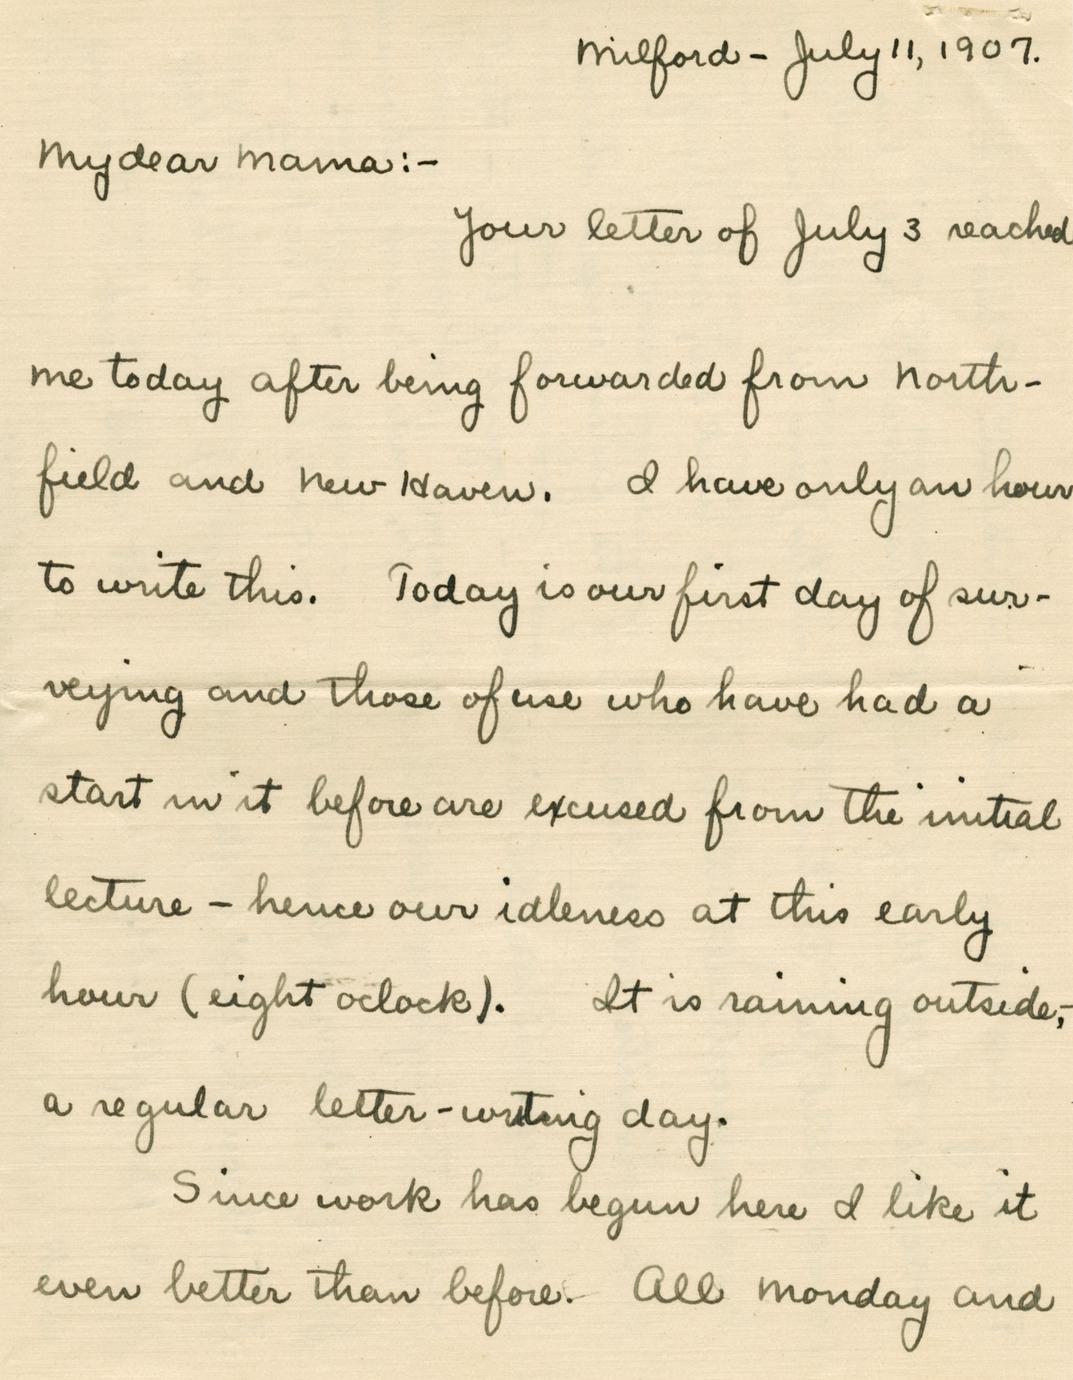 Milford - July 11, 1907.
My dear Mama:-
Your letter of July 3 reached
me today after being forwarded from North-
field and New Haven. I have only an hour
to write this. Today is our first day of sur-
veying and those of use who have had a
start in it before are excused from the initial
lecture - hence our idleness at this early
hour (eight oclock). It is raining outside,-
a regular letter-writing day.
Since work has begun here I like it
even better than before. All Monday and